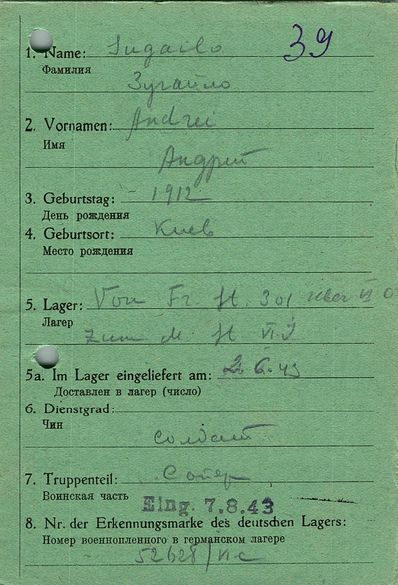 39
1. Name: Sugailo
Фамилия
Зугайло
2. Vornamen: Andrei
Имя
Андрий
3. Geburtstag: 1912
День рождения
4. Geburtsort: Киев
Место рождения
5. Lager: Von Fr. St. 301
Лагер
zum M. St. VI.J
5a. Im Lager eingeliefert am: 2.6.43
Доставлен в лагер (число)
6. Dienstgrad:
Чин
солдат
7. Truppenteil: Сапер
Воинская часть
Eing. 7.8.43
8. Nr. der Erkennungsmarke des deutschen Lagers:
Номер военнопленного в германском лагере
52628/